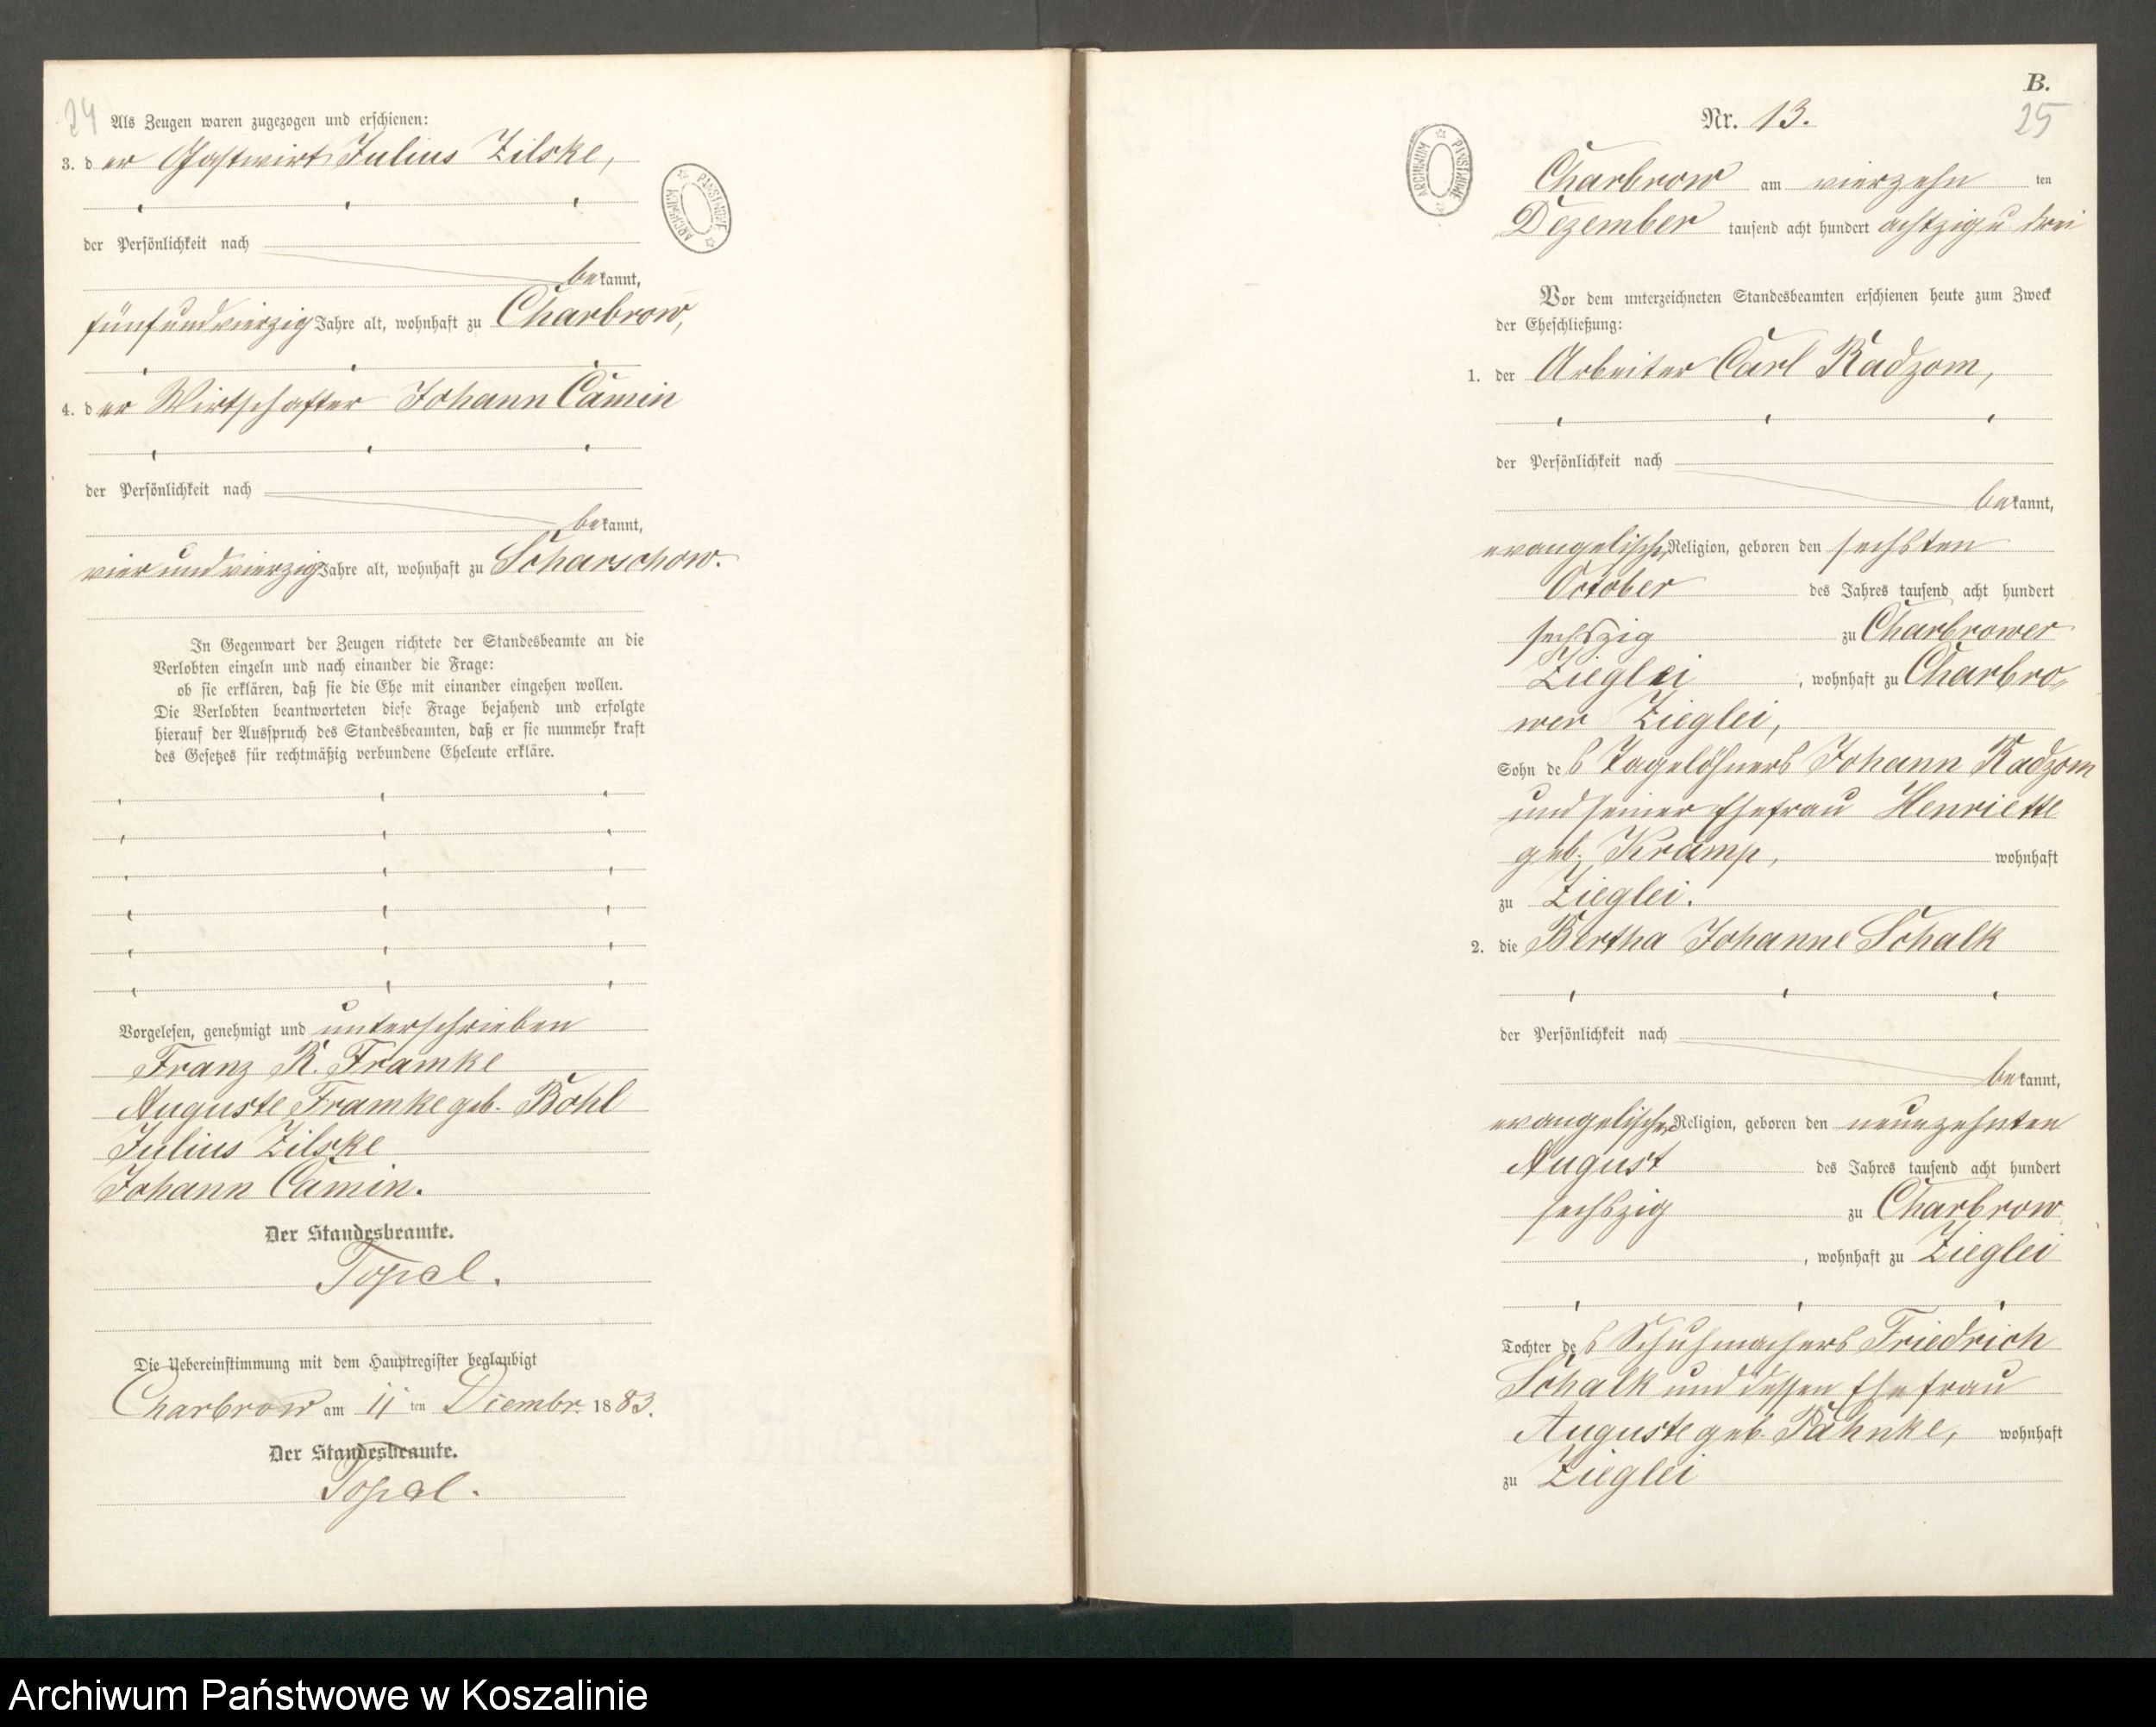 24
Als Zeugen waren zugezogen und erschienen:
3. der Gastwirt Julius Zilske,
der Persönlichkeit nach
bekannt,
fünfundvierzig Jahre alt, wohnhaft zu Charbrow,
4. der Wirtschafter Johann Camin
der Persönlichkeit nach
bekannt,
vierundvierzig Jahre alt, wohnhaft zu Scharschow.
In Gegenwart der Zeugen richtete der Standesbeamte an die
Verlobten einzeln und nach einander die Frage:
ob sie erklären, daß sie die Ehe mit einander eingehen wollen.
Die Verlobten beantworteten diese Frage bejahend und erfolgte
hierauf der Ausspruch des Standesbeamten, daß er sie nunmehr kraft
des Gesetzes für rechtmäßig verbundene Eheleute erkläre.
Vorgelesen, genehmigt und unterschrieben
Franz R. Framke
Auguste Framke geb. Bohl
Julius Zilske
Johann Camin.
Der Standesbeamte.
Topel.
Die Uebereinstimmung mit dem Hauptregister beglaubigt
Charbrow am 11 ten Dicembr. 1883.
Der Standesbeamte.
Topel.
ARCHIWUM PAŃSTWOWE
B.
25
Nr. 13.
ARCHIWUM PAŃSTWOWE
Charbrow am vierzehn ten
Dezember tausend acht hundert achtzig u drei
Vor dem unterzeichneten Standesbeamten erschienen heute zum Zweck
der Eheschließung:
1. der Arbeiter Carl Radzom,
der Persönlichkeit nach
bekannt,
evangelischer Religion, geboren den sechsten
October des Jahres tausend acht hundert
sechszig zu Charbrower
Zieglei, wohnhaft zu Charbro-
wer Zieglei,
Sohn des Tagelöhners Johann Radzom
und seiner Ehefrau Henriette
geb. Kramp, wohnhaft
zu Zieglei.
2. die Bertha Johanne Schalk
der Persönlichkeit nach
bekannt,
evangelischer Religion, geboren den neunzehnten
August des Jahres tausend acht hundert
sechszig zu Charbrow
, wohnhaft zu Zieglei
Tochter des Schuhmachers Friedrich
Schalk und dessen Ehefrau
Auguste geb. Pahnke, wohnhaft
zu Zieglei
Archiwum Państwowe w Koszalinie